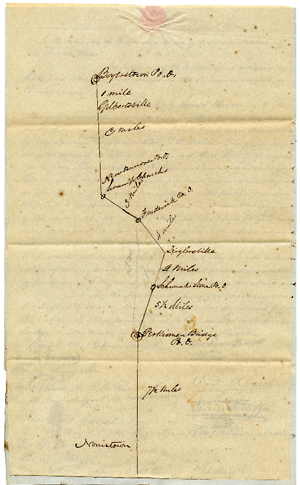 Boyertown P.O.
1 mile
Gilbertsville
3 miles
New Hanover P.O.
Swamp Churches
3 miles
Frederick P.O.
miles
Zieglersville
2 Miles
Schwenks Store P.O
5½ Miles
Perkiomen Bridge
P.O.
7½ Miles
Norristown